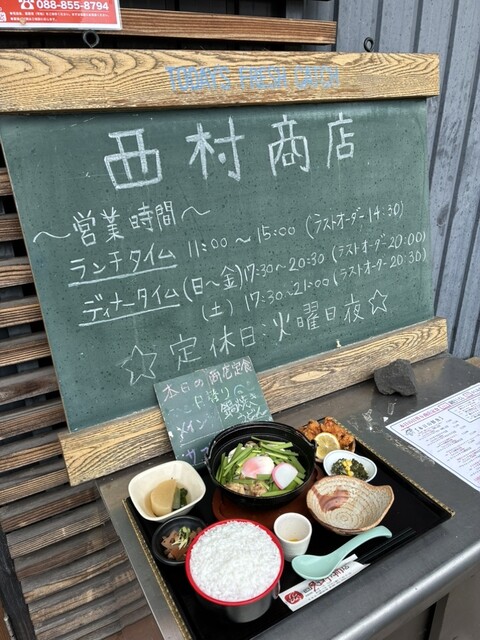 088-855-8794
TODAY'S FRESH CATCH
西村商店
～営業時間～
ランチタイム 11:00～15:00 (ラストオーダー14:30)
ディナータイム (日～金) 17:30～20:30 (ラストオーダー20:00)
(土) 17:30～21:00 (ラストオーダー20:30)
☆定休日:火曜日夜☆
本日の商店定食
メイン
鍋焼き